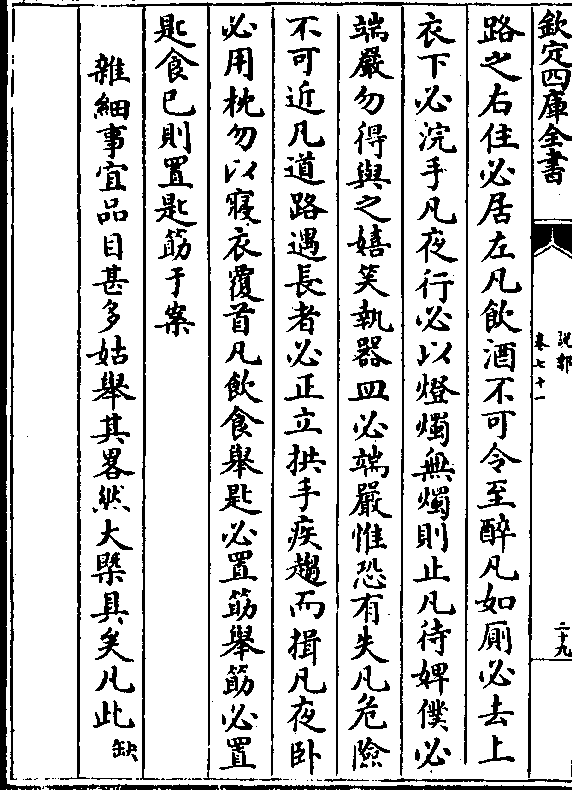 欽定四庫全書
說郛
卷七十一
二十九
路之右住必居左凡飲酒不可令至醉凡如厠必去上
衣下必浣手凡夜行必以燈燭無燭則止凡待婢僕必
端嚴勿得與之嬉笑執器皿必端嚴惟恐有失凡危險
不可近凡道路遇長者必正立拱手疾趨而揖凡夜卧
必用枕勿以寢衣覆首凡飲食舉匙必置筯舉筯必置
匙食已則置匙筯于案
雜細事宜品目甚多姑舉其畧然大槩具矣凡此缺